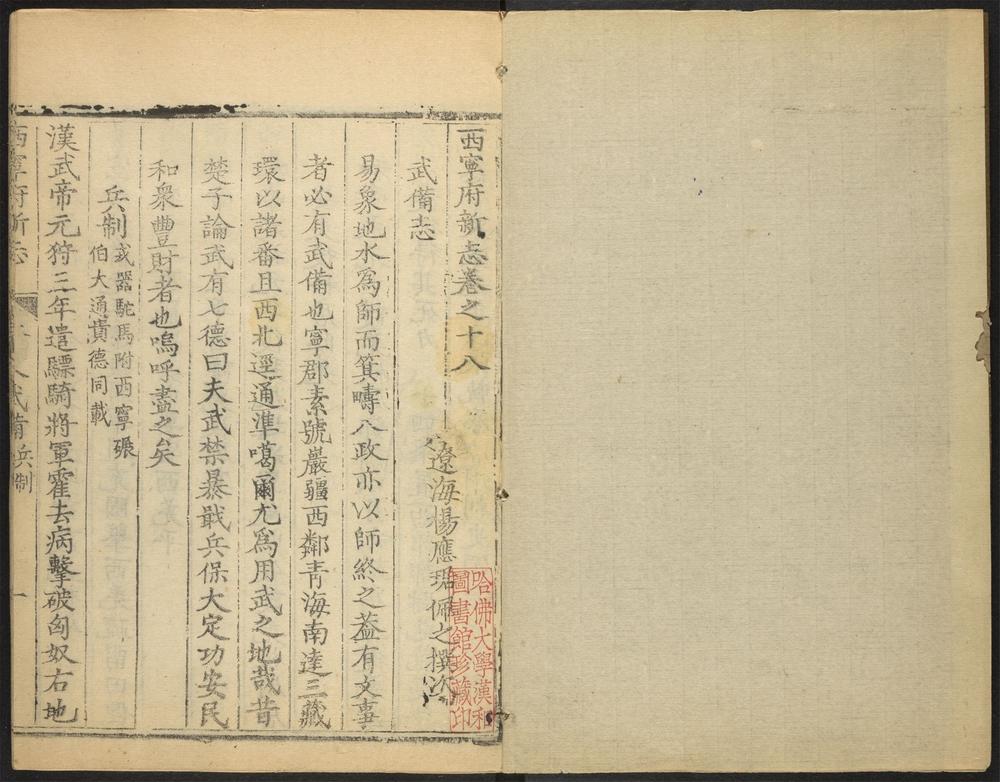 西寧府新志卷之十八
遼海楊應琚佩之撰次
哈佛大學漢和
圖書館珍藏印
武備志
易象地水爲師而箕疇八政亦以師終之葢有文事
者必有武備也寧郡素號巖疆西鄰青海南達三藏
環以諸番且西北逕通準噶爾尤爲用武之地哉昔
楚子論武有七德曰夫武禁暴戢兵保大定功安民
和衆豐財者也嗚呼盡之矣
兵制
戎器駝馬附西寧碾
伯大通貴德同載
漢武帝元狩三年遣驃騎將軍霍去病擊破匈奴右地
西寧府新志
武備兵制
一